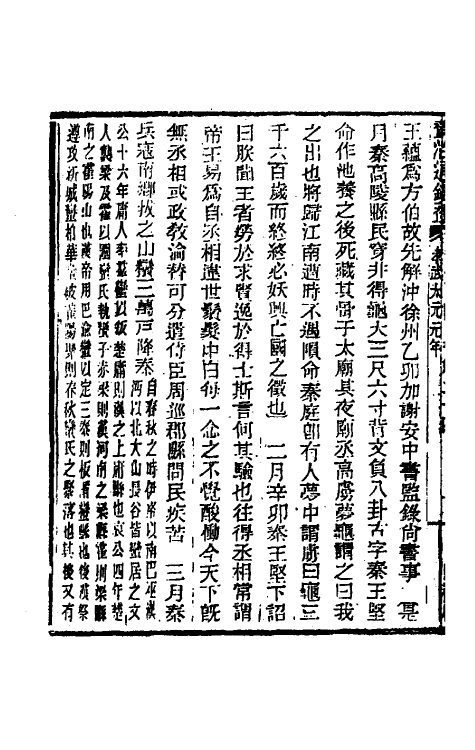 王蘊爲方伯故先解沖徐州乙卯加謝安中書監錄尚書事 是
月秦高陵縣民穿井得龜大三尺六寸背文負八卦古字秦王堅
命作池養之後死藏其骨于太廟其夜廟丞高虜夢龜謂之曰我
之出也將歸江南遭時不遇隕命秦庭卽有人夢中謂虜曰龜三
千六百歲而終終必妖興亡國之徵也 二月辛卯秦王堅下詔
曰朕聞王者勞於求賢逸於得士斯言何其驗也往得丞相常謂
帝王易爲自丞相違世鬚髮中白每一念之不覺酸慟今天下旣
無丞相或政敎淪替可分遣侍臣周巡郡縣問民疾苦 三月秦
兵寇南鄉拔之山蠻三萬戸降秦
自春秋之時伊雒以南巴巫漢
沔以北大山長谷皆蠻居之文
公十六年庸人率羣蠻以叛楚庸則漢之上庸縣也哀公四年楚
人襲梁及霍以圍蠻氏執蠻子赤梁則漢河南之梁縣霍則梁縣
南之霍陽山也漢高帝用巴渝蠻以定三秦則板楯蠻也後漢祭
遵攻新城蠻柏華蠻破霍陽聚則春秋蠻氏之聚落也其後又有